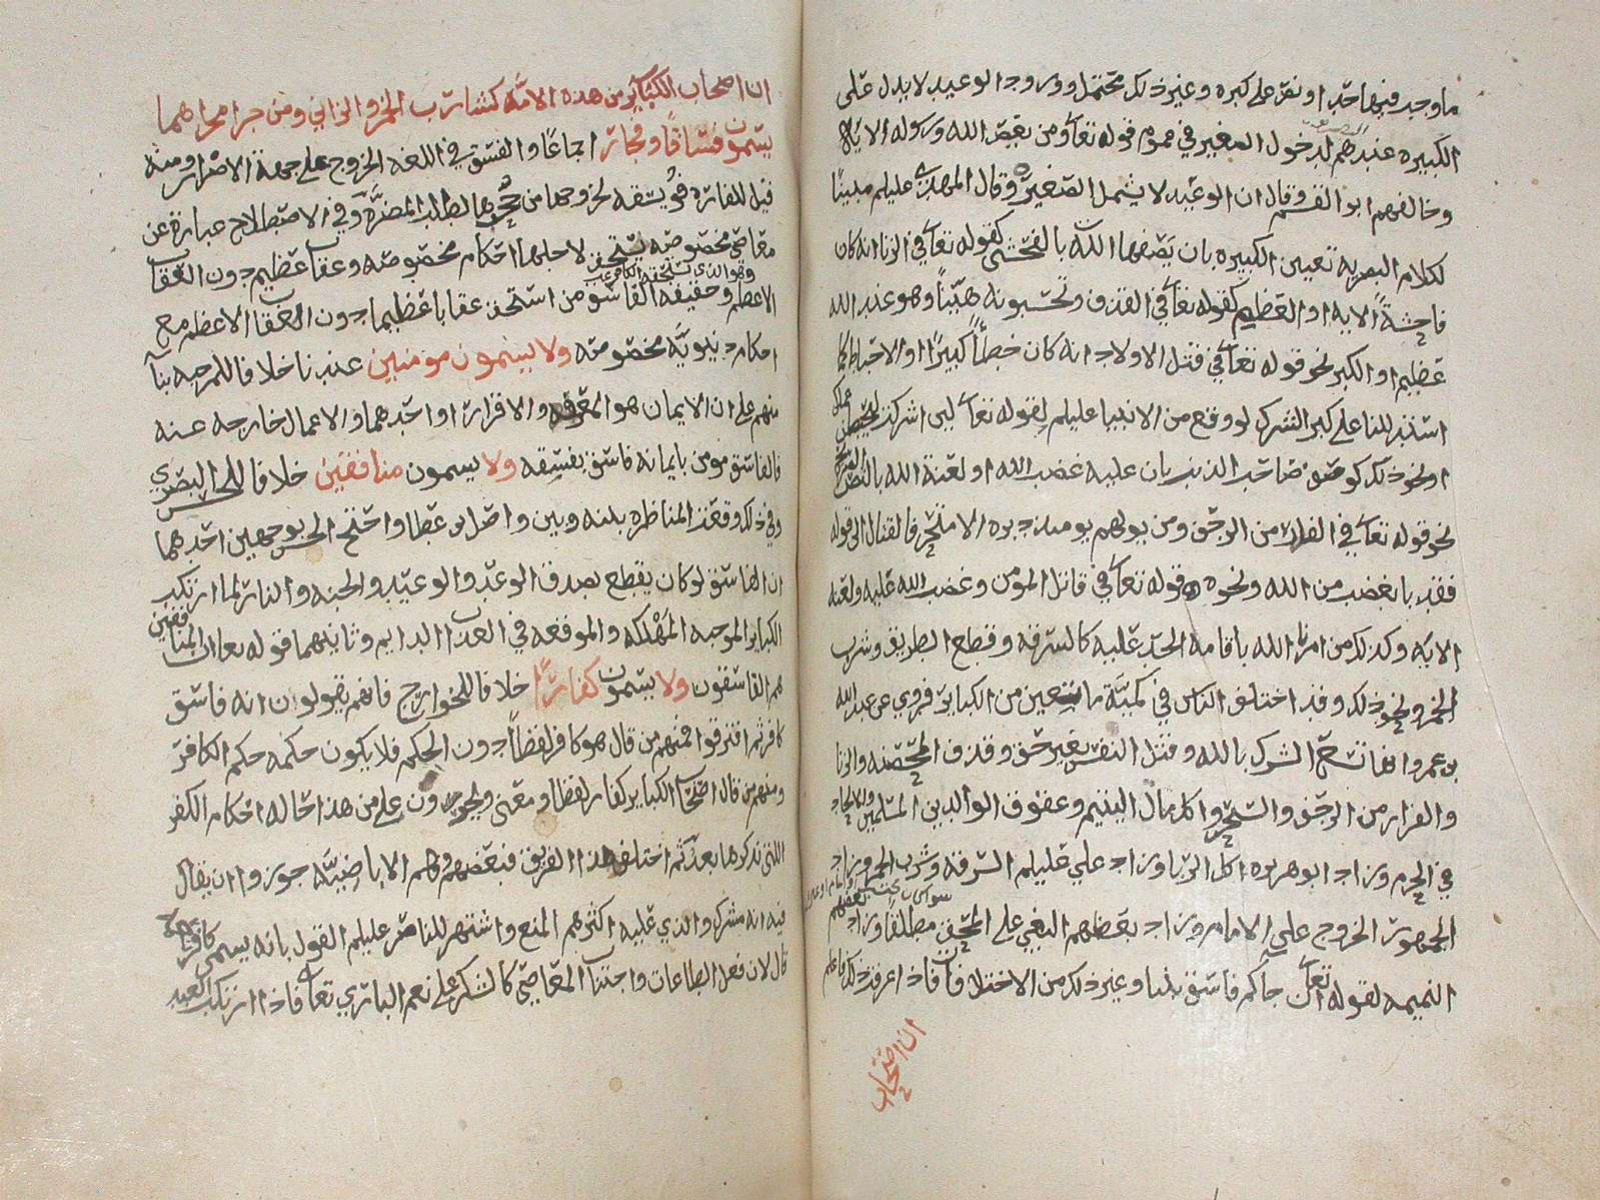 ما وجد فيها حدا او نص على كبره وغير ذلك محتمل وورود الوعيد لا يدل على
الكبيره عندهم لدخول الصغير في عموم قوله تعالى ومن يعص الله ورسوله الايه
وخالفهم ابو القسم وقال ان الوعيد لا يشمل الصغير وقال المهدي عليلم مبينا
لكلام البصريه تعيين الكبيره بان يصفها الله بالفحش كقوله تعالى في الزنا انه كان
فاحشة الايه او العظيم كقوله تعالى في القذف وتحسبونه هينا وهو عند الله
عظيم او الكبر نحو قوله تعالى في قتل الاولاد انه كان خطأ كبيرا او الاحباط كما
استدللنا على كبر الشرك لو وقع من الانبيا عليلم لقوله تعالى لين اشركت ليحبطن عملك
او نحو ذلك كوصف صاحب الذنب بان عليه غضب الله او لعنة الله بالنص
نحو قوله تعالى في الفار من الزحف ومن يولهم يوميذ دبره الا متحرفا لقتال الى قوله
فقد با بغضب من الله ونحوه قوله تعالى في قاتل المومن وغضب الله عليه ولعنه
الايه وكذلك من امر الله باقامة الحد عليه كالسرقه وقطع الطريق وشرب
الخمر ونحو ذلك وقد اختلف الناس في كمية ما تعين من الكباير فروي عن عبد الله
بن عمر وانها تسع الشرك بالله وقتل النفس بغير حق وقذف المحصنه والزنا
والفرار من الزحف والسحر واكل مال اليتيم وعقوق الوالدين المسلمين والالحاد
في الحرم وزاد ابو هريره اكل الربا وزاد علي عليلم السرقه وشرب الخمر وزاد
الجمهور الخروج على الامام وزاد بعضهم البغي على المحق مطلقا وزاد بعضهم
النميمه لقوله تعالى ان جاكم فاسق بنبا وغير ذلك من الاختلاف فاذا عرفت ذلك فاعلم
ان اصحاب
ان اصحاب الكباير من هذه الامة كشارب الخمر والزاني ومن جرا مجراهما
يسمون فساقا وفجارا اجماعا والفسق في اللغه الخروج على جهة الاضرار ومنه
قيل للفاره فويسقه لخروجها من جحرها لطلب المضرة وفي الاصطلاح عبارة عن
معاصي مخصوصه يستحق لاجلها احكام مخصوصه وعقاب عظيم دون العقاب
وهو الذي يستحقه الكافر
الاعظم وحقيقة الفاسق من استحق عقابا عظيما دون العقاب الاعظم مع
احكام دنيوية مخصوصه ولا يسمون مومنين عندنا خلافا للمرجيه بنآ
منهم على ان الايمان هو المعرفه والاقرار او احدهما والاعمال خارجه عنه
فالفاسق مومن بايمانه فاسق بفسقه ولا يسمون منافقين خلافا للحسن البصري
وفي ذلك وقعت المناظره بينه وبين واصل بن عطا واحتج الحسن بوجهين احدهما
ان الفاسق لو كان يقطع بصدق الوعد والوعيد والجنه والنار لما ارتكب
الكباير الموجبه المهلكه والموقعه في العذاب الدايم وثانيهما قوله تعالى ان المنافقين
هم الفاسقون ولا يسمون كفارا خلافا للخوارج فانهم يقولون انه فاسق
كافر ثم افترقوا فمنهم من قال هو كافر لفظا دون الحكم فلا يكون حكمه حكم الكافر
ومنهم من قال اصحاب الكباير كفار لفظا ومعنى ويجرون على من هذا حاله احكام الكفر
اللتي نذكرها بعد ثم اختلف هذا الفريق فبعضهم وهم الاباضية جوزوا ان يقال
فيه انه مشرك والذي عليه اكثرهم المنع واشتهر للناصر عليلم القول بانه يسمى كافر نعمة
قال لان فعل الطاعات واجتناب المعاصي كالشكر على نعم الباري تعالى فاذا ارتكب العبد